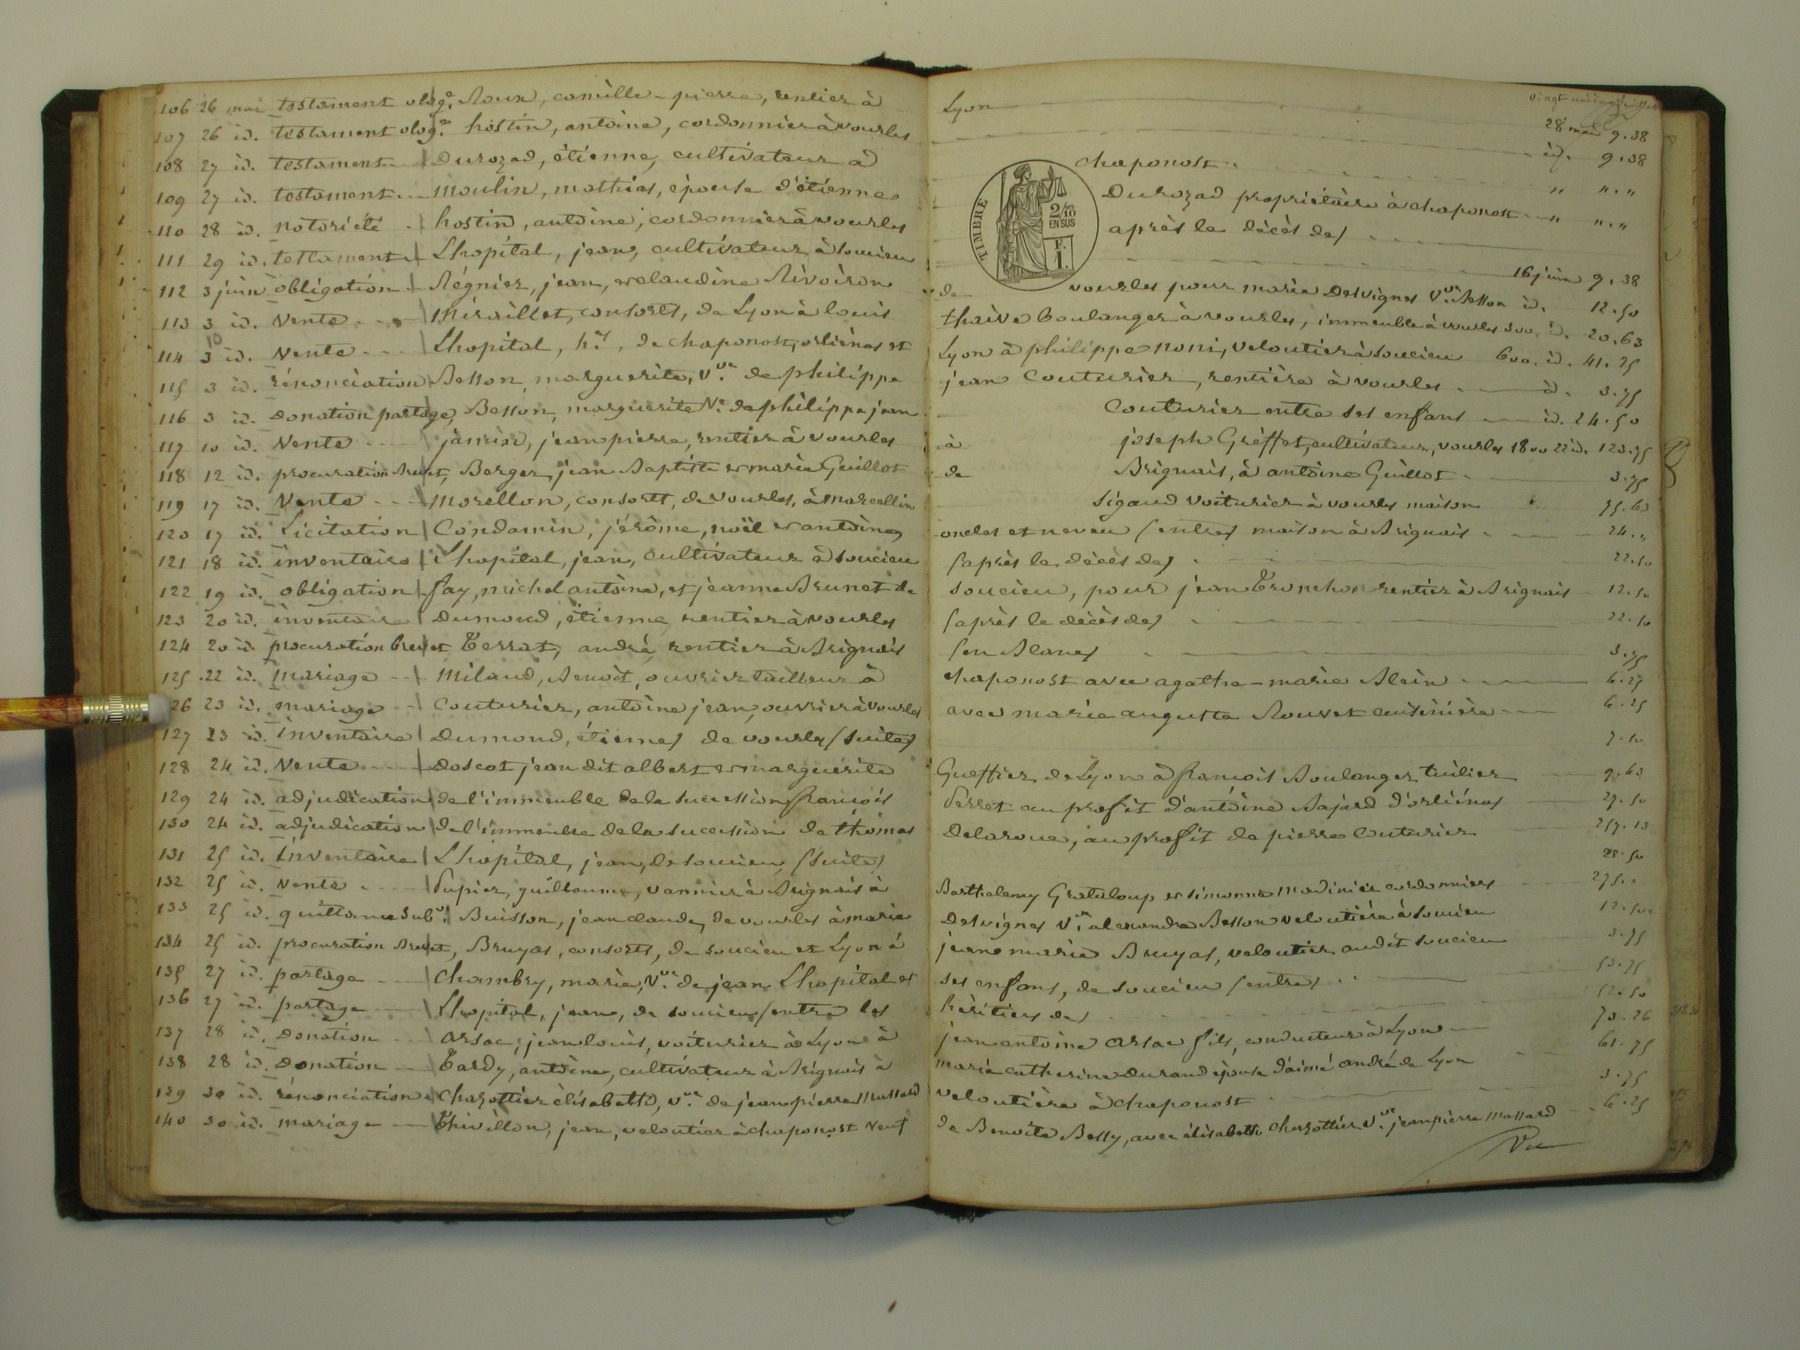 106 26 mai testament olog.e Roux, camille-pierre, rentier à
107 26 id. testament olog.e hostin, antoine, cordonnier à vourles
108 27 id. testament Durozad, étienne, cultivateur à
109 27 id. testament moulin, mathias, épouse d'étienne
110 28 id. notoriété hostin, antoine, cordonnier à vourles
111 29 id. testament Lhopital, jean, cultivateur à soucieu
112 3 juin obligation Régnier, jean, et claudine Rivoiron
113 3 id. Vente Miraillet, consorts, de Lyon à louis
114 3 10 id. Vente Lhopital, h.t, de chaponost, orliénas et
115 3 id. rénonciation Besson, marguerite, V.ve de philippe
116 3 id. Donation partage, Besson, marguerite V.e de philippe jean
117 10 id. Vente jamin, jean pierre, rentier à vourles
118 12 id. procuration brevet, Berger, jean Baptiste et marie Guillot
119 17 id. Vente Morellon, consorts, de vourles, à marcellin
120 17 id. Licitation Condamin, jérôme, noël et antoine
121 18 id. inventaire Lhopital, jean, cultivateur à soucieu
122 19 id. obligation fay, michel antoine, et jeanne Brunet de
123 20 id. inventaire Dumond, étienne, rentier à vourles
124 20 id. procuration brevet, Terrat, andré, rentier à Brignais
125 22 id. mariage Milaud, Benoît, ouvrier tailleur à
26 23 id. mariage Couturier, antoine jean, ouvrier à vourles
127 23 id. inventaire Dumond, étienne, de vourles (suite)
128 24 id. Vente Doscot jean dit albert et marguerite
129 24 id. adjudication de l'immeuble de la succession françois
130 24 id. adjudication de l'immeuble de la succession de thomas
131 25 id. inventaire Lhopital, jean, de soucieu (suite)
132 25 id. vente Pupier, guillaume, vannier à Brignais à
133 25 id. quittance sub.ve Buisson, jean claude, de vourles à marie
134 25 id. procuration brevet, Bruyas, consorts, de soucieu et Lyon à
135 27 id. partage Chambry, marie, V.ve de jean Lhopital et
136 27 id. partage Lhopital, jean, de soucieu (entre les
137 28 id. Donation Arsac, jean louis, voiturier à Lyon à
138 28 id. Donation Tardy, antoine, cultivateur à Brignais à
139 30 id. rénonciation Chazottier élisabeth, v.ve de jean pierre Massard
140 30 id. mariage Thivillon, jean, veloutier à chaponost veuf
Lyon 28 mai 9.38
id. 9.38
chaponost " "."
Durozad propriétaire à chaponost " "."
après le décès de)
16 juin 9.38
TIMBRE
2/10
EN SUS
F.
1.
de vourles pour marie Desvignes V.ve Besson id. 12.50
thaive boulanger à vourles, immeuble à vourles 300. id. 20.63
Lyon à philippe noni, veloutier à soucieu 600. id. 41.25
jean Couturier, rentière à vourles id. 3.75
Couturier entre ses enfans id. 24.50
à joseph Greffet, cultivateur, vourles 1800 22 id. 123.75
de Brignais, à antoine Guillot 3.75
Sigaud voiturier à vourles maison 75.63
oncles et neveu (entre) maison à Brignais 24."
(après le décès de) 22.50
soucieu, pour jean Tronchon rentier à Brignais 12.50
(après le décès de) 22.50
(en Blanc) 3.75
chaponost avec agathe-marie Blein 6.25
avec marie auguste Rouvet cuisinière 6.25
7.50
Gueffier de Lyon à françois Boulanger tuilier 9.63
Perret au profit d'antoine Bajard d'orliénas 27.50
Delaroue, au profit de pierre Couturier 257.13
22.50
Barthelemy Grataloup et simonne Modinier cordonniers 275.
Desvignes V.ve alexandre Besson veloutière à soucieu 12.50
jeanne marie Bruyas, veloutier audit soucieu 3.75
ses enfans, de soucieu (entre) 53.75
héritiers de) 52.50
jean antoine Arsac fils, conducteur à Lyon 70.26
marie catherine Durand épouse d'aimé andré de Lyon 61.75
veloutière à chaponost 3.75
de Benoite Bally, avec élisabeth Chazottier V.ve jean pierre Massard 6.25
Vu